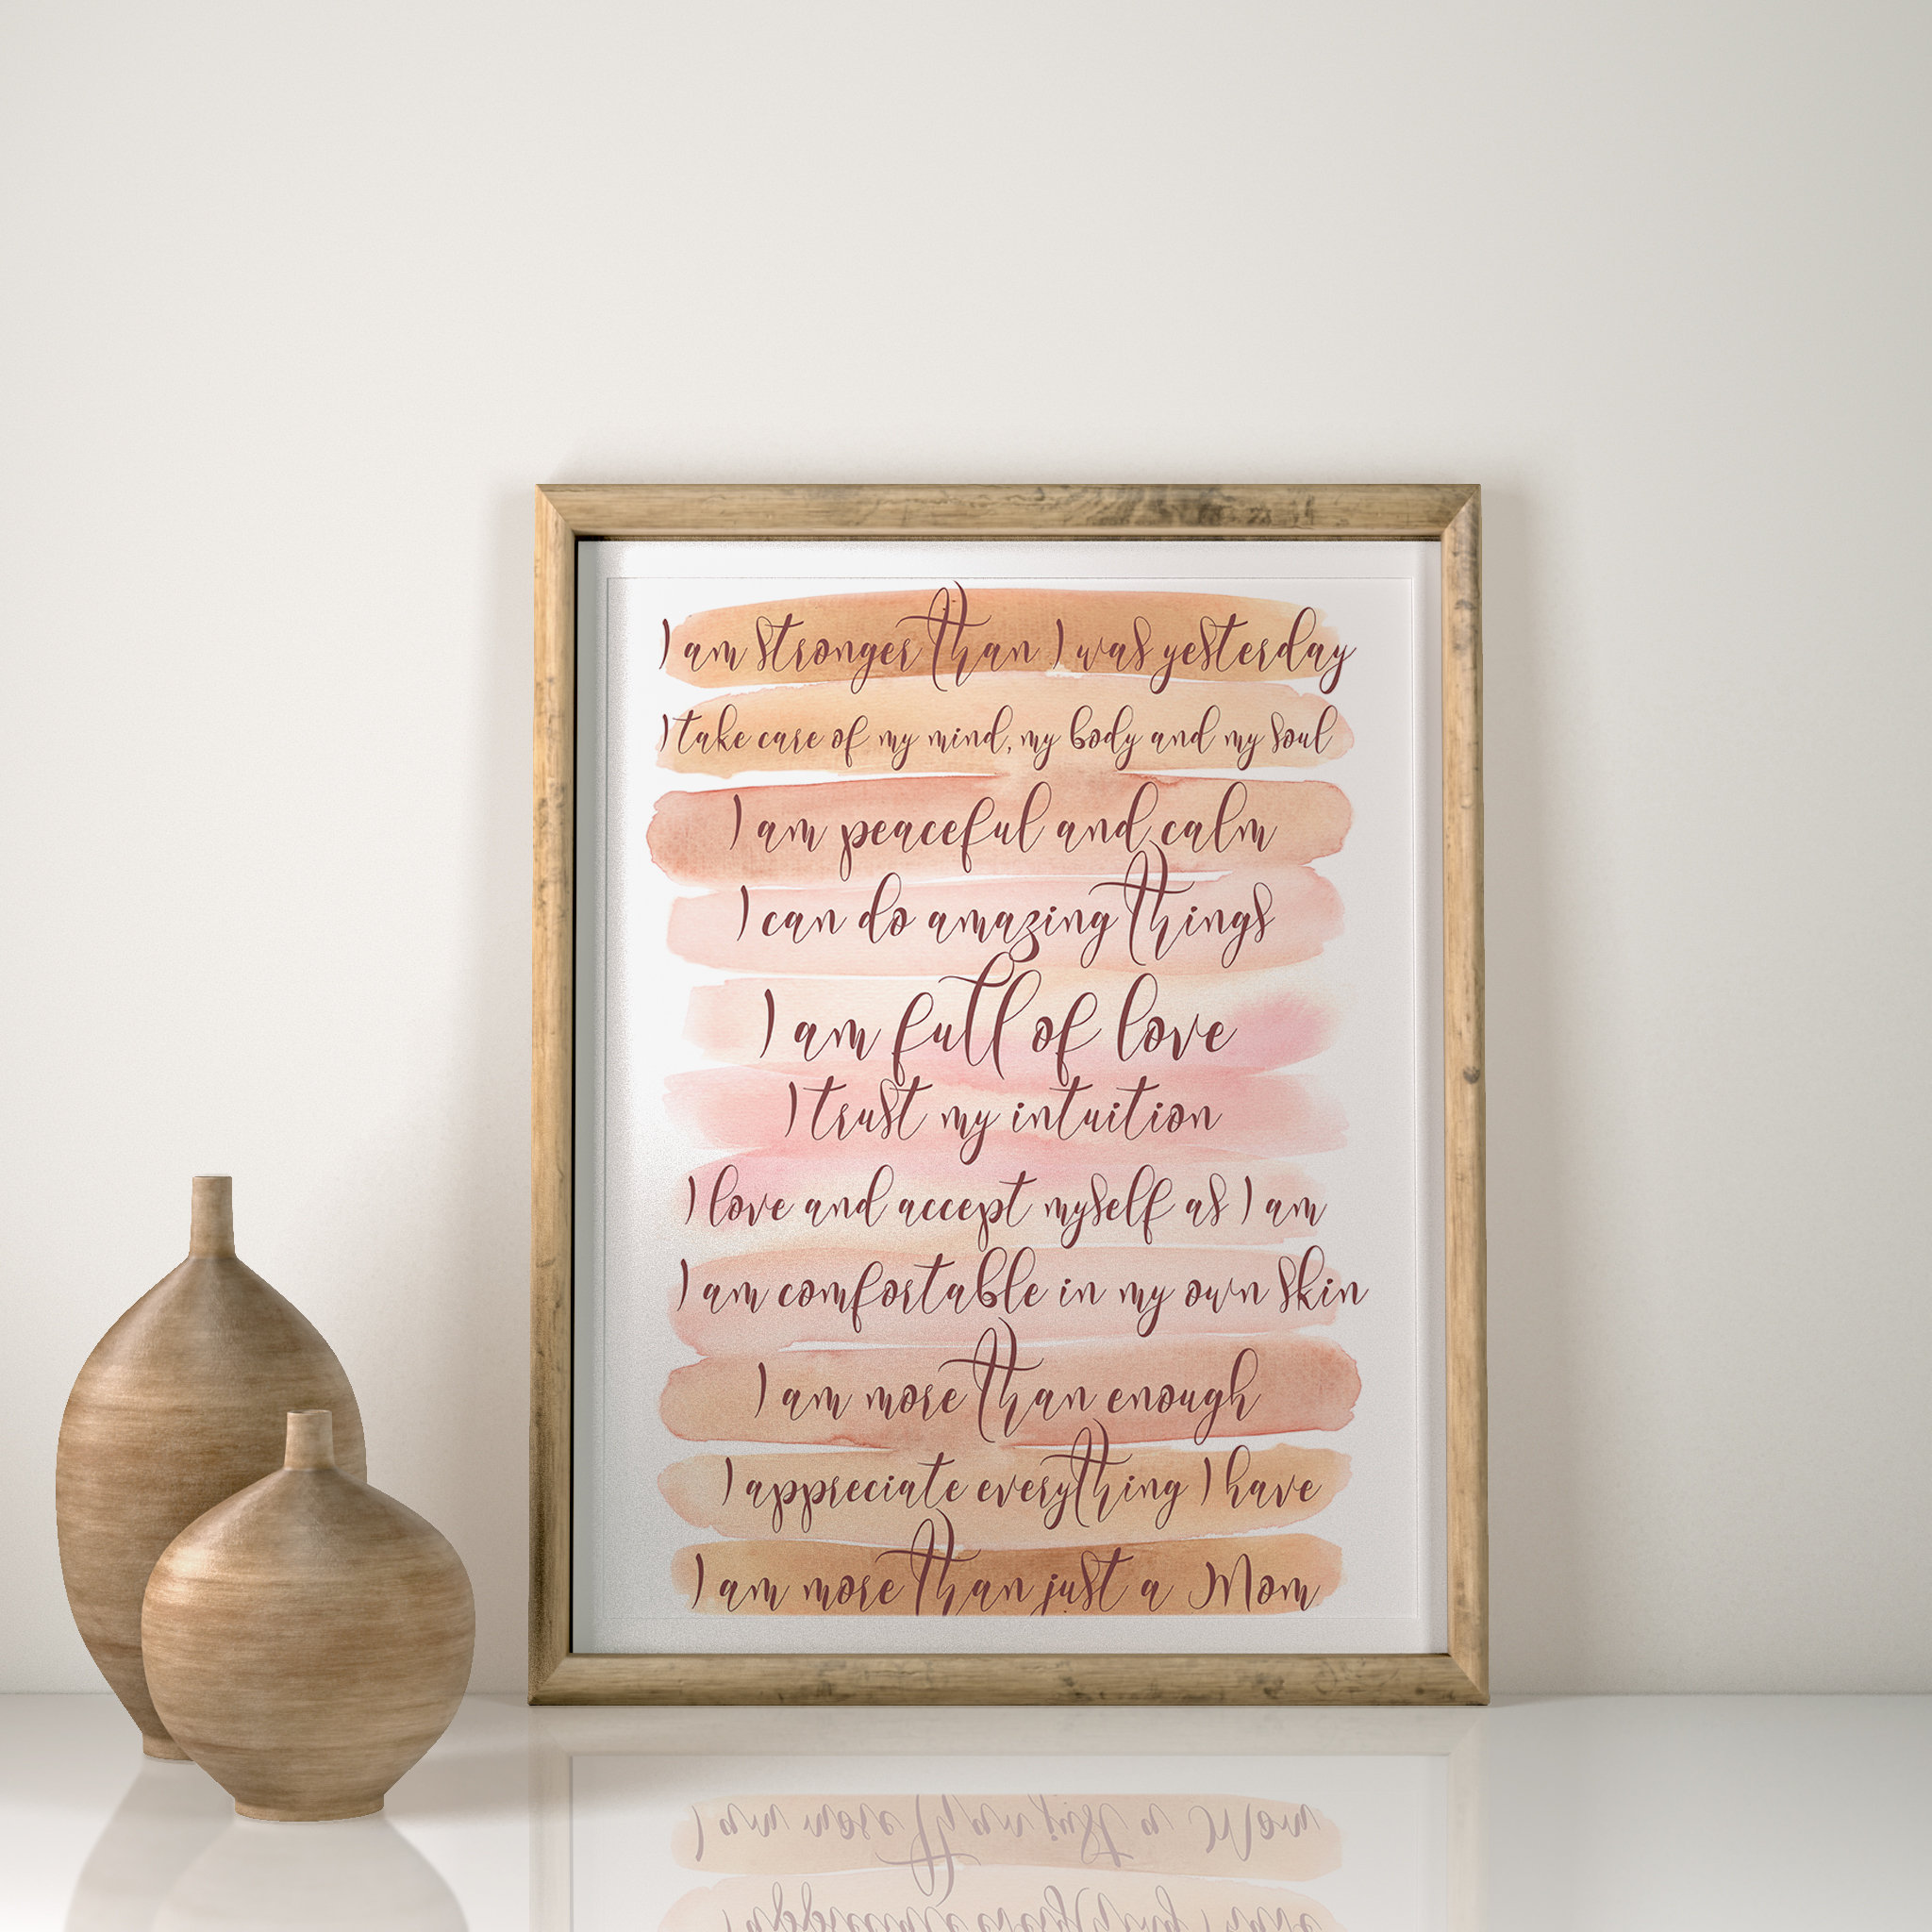 I am stronger than I was yesterday
I take care of my mind, my body and my soul
I am peaceful and calm
I can do amazing things
I am full of love
I trust my intuition
I love and accept myself as I am
I am comfortable in my own skin
I am more than enough
I appreciate everything I have
I am more than just a Mom